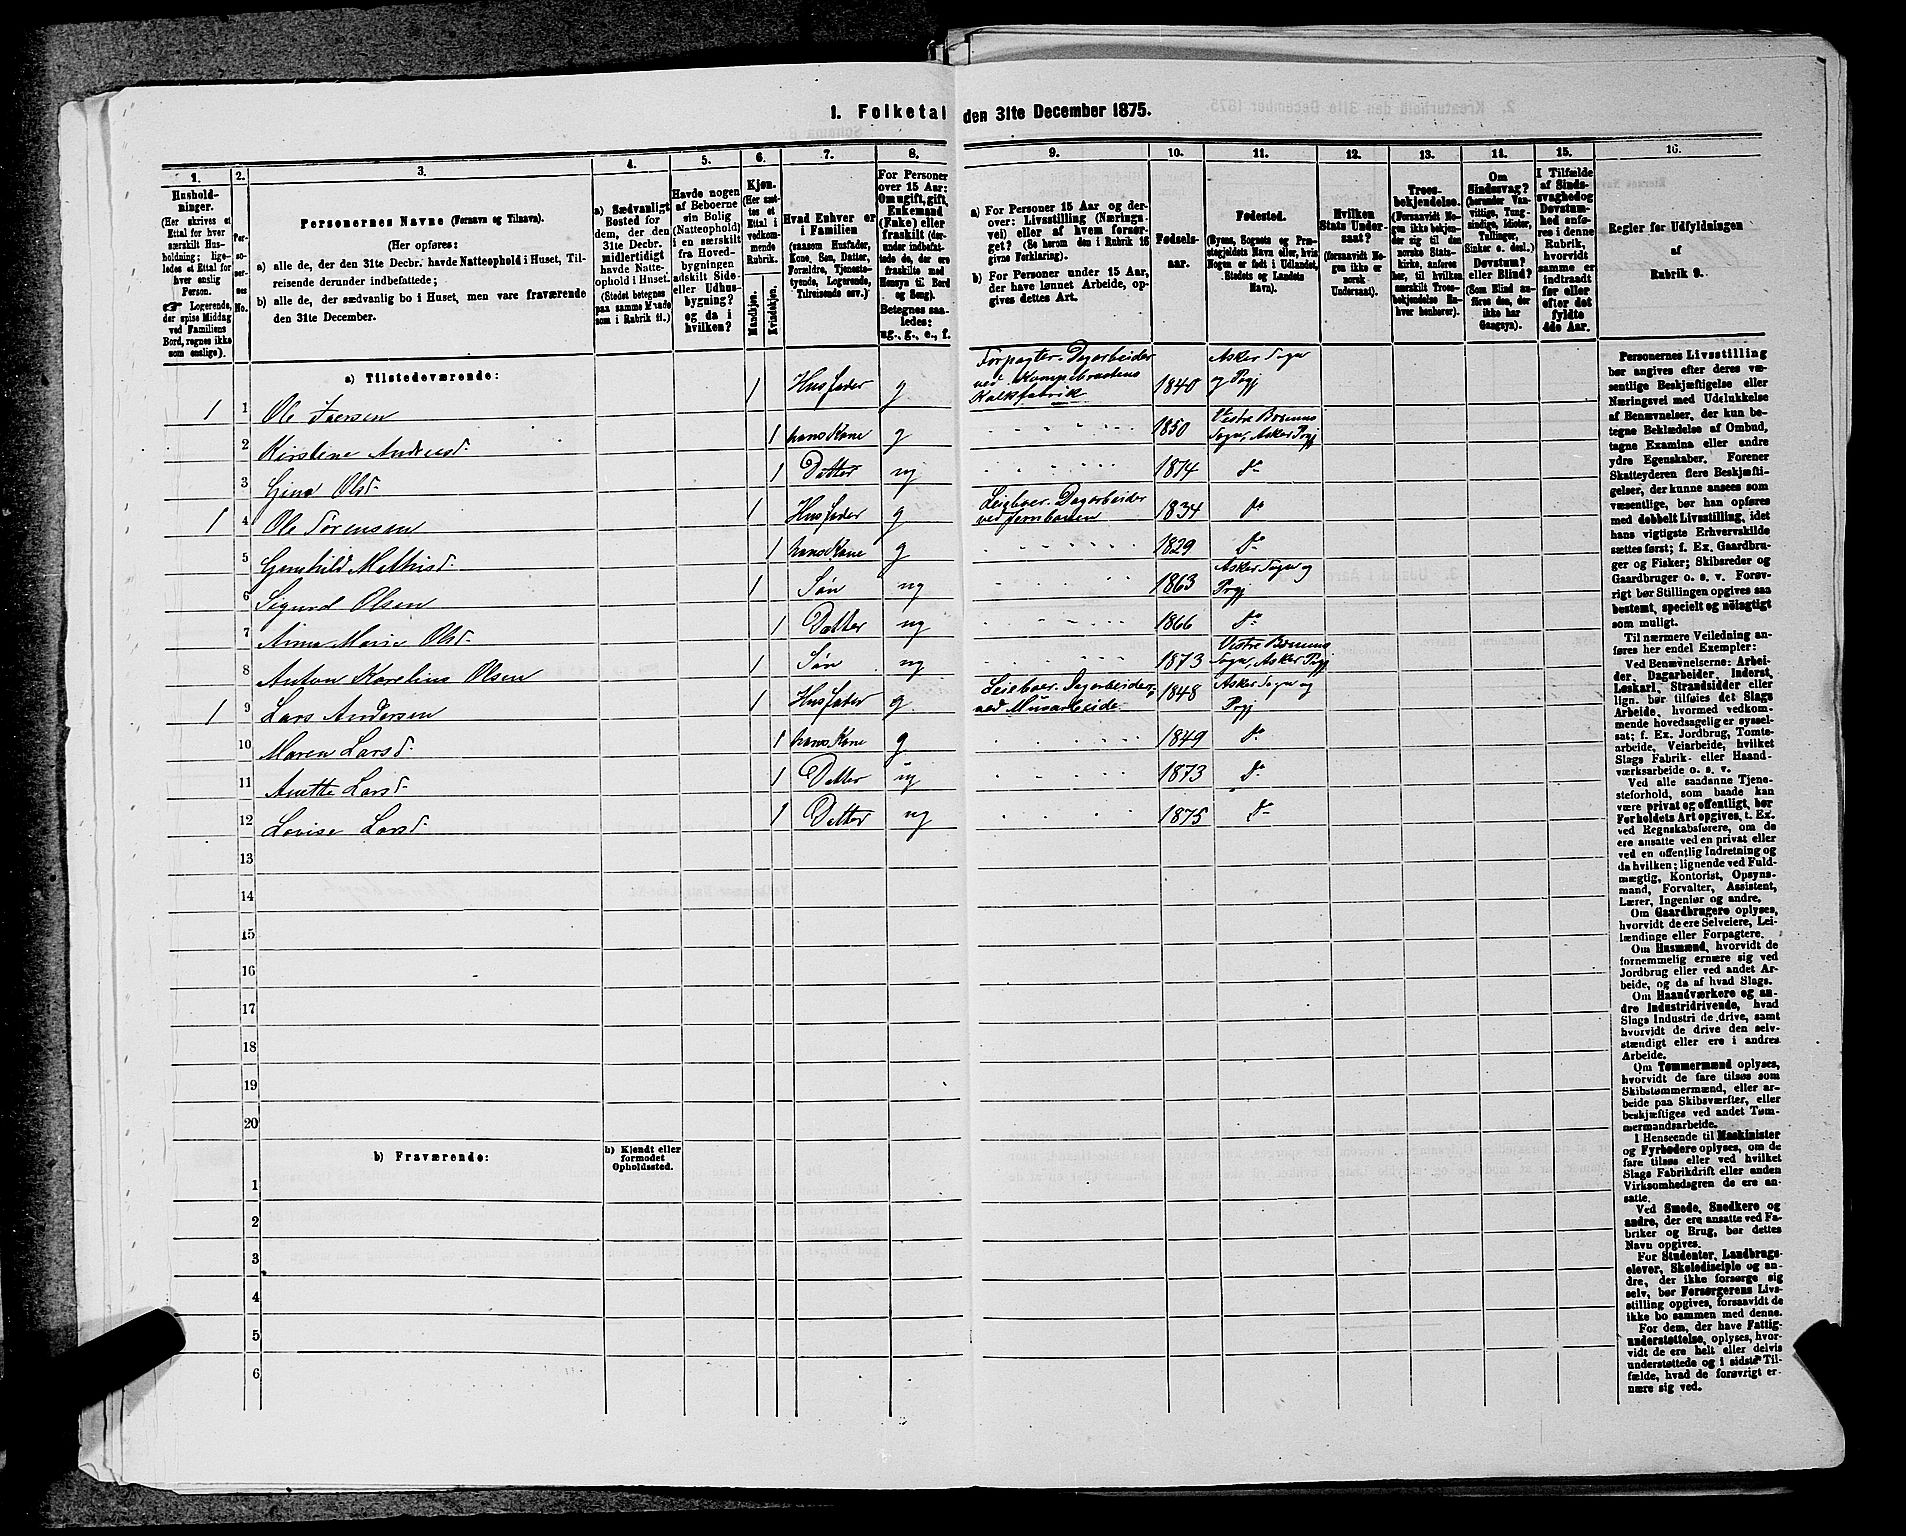 1. Folketal den 31te December 1875.
1.
Hushold-
ninger.
(Her skrives et
Ettal for hver
særskilt Hus-
holdning; lige-
ledes et Ettal for
hver enslig
Person.
☞ Logerende,
der spise Middag
ved Familiens
Bord, regnes ikke
som enslige).
2.
Per-
so-
ner-
nes
No.
3.
Personernes Navne (Fornavn og Tilnavn).
(Her opføres:
a) alle de, der den 31te Decbr. havde Natteophold i Huset, Til-
reisende derunder indbefattede;
b) alle de, der sædvanlig bo i Huset, men vare fraværende
den 31te December.
4.
a) Sædvanligt
Bosted for
dem, der den
31te Decbr.
midlertidigt
havde Natte-
ophold i Huset.
(Stedet betegnes
paa samme Maade
som i Rubrik 11.)
5.
Havde nogen
af Beboerne
sin Bolig
(Natteophold)
i en særskilt
fra Hoved-
bygningen
adskilt Side-
eller Udhus-
bygning?
og da i
hvilken?
6.
Kjøn.
(Her sæt-
tes et
Ettal i
vedkom-
mende
Rubrik.
Mandkjøn.
Kvindekjøn.
7.
Hvad Enhver er
i Familien
(saasom Husfader,
Kone, Søn, Datter,
Forældre, Tjeneste-
tyende, Logerende,
Tilreisende osv.)
8.
For Personer
over 15 Aar:
Om ugift, gift,
Enkemand
(Enke) eller
fraskilt (der-
under indbefat-
tede de, der ere
fraskilte med
Hensyn til Bord
og Seng).
Betegnes saa-
ledes:
ug., g., e., f.
9.
a) For Personer 15 Aar og der-
over: Livsstilling (Nærings-
vei) eller af hvem forsør-
get? (Se herom den i Rubrik 16
givne Forklaring).
b) For Personer under 15 Aar,
der have lønnet Arbeide, op-
gives dettes Art.
10.
Fødsels-
aar.
11.
Fødested.
(Byens, Sognets og Præ-
stegjeldets Navn eller, hvis
Nogen er født i Udlandet,
Stedets og Landets
Navn).
12.
Hvilken
Stats Under-
saat?
(forsaavidt No-
gen ikke er
norsk
Undersaat).
13.
Troes-
bekjendelse.
(Forsaavidt No-
gen ikke bekjen-
der sig til den
norske Stats-
kirke, anføres
her, til hvilken
særskilt Troes-
bekjendelse En-
hver henhører).
14.
Om
Sindssvag?
(herunder Van-
vittige, Tung-
sindige, Idioter,
Tullinger,
Sinker o. desl.)
Døvstum?
eller Blind?
(Som Blind an-
føres den, der
ikke har
Gangsyn).
15.
I Tilfælde
af Sinds-
svaghed og
Døvstum-
hed anfø-
res i denne
Rubrik,
hvorvidt
samme er
indtraadt
før eller
efter det
fyldte
4de Aar.
16.
Regler for Udfyldningen
af
Rubrik 9.
a) Tilstedeværende:
1 1 Ole Iversen 1 Husfader g Forpagter. Dagarbeider ved Kalkfabrik 1840 Asker Sogn og Prgj
2 Kirstine Andersd. 1 hans Kone g 1850 Vestre Bærums Sogn, Asker Prgj
3 Gina Olsd. 1 Datter ug 1874 do
1 4 Ole Sørensen 1 Husfader g Leieboer. Dagarbeider ved Jernbanen 1834 do
5 Gunhild Mathisd. 1 hans Kone g 1829 do
6 Sigurd Olsen 1 Søn ug 1863 Asker Sogn og Prgj
7 Anna Marie Olsd. 1 Datter ug 1866 do
8 Anton Karelius Olsen 1 Søn ug 1873 Vestre Bærums Sogn, Asker Prgj
1 9 Lars Andersen 1 Husfader g Leieboer. Dagarbeider ved Murarbeide 1848 Asker Sogn og Prgj
10 Maren Larsd. 1 hans Kone g 1849 do
11 Anette Larsd. 1 Datter ug 1873 do
12 Lovise Larsd. 1 Datter ug 1875 do
13
14
15
16
17
18
19
20
b) Fraværende:
b) Kjendt eller
formodet
Opholdssted.
1
2
3
4
5
6
Personernes Livsstilling
bør angives efter deres væ-
sentlige Beskjæftigelse eller
Næringsvei med Udelukkelse
af Benævnelser, der kun be-
tegne Beklædelse af Ombud,
tagne Examina eller andre
ydre Egenskaber. Forener
Skatteyderen flere Beskjæfti-
gelser, der kunne ansees som
væsentlige, bør han opføres
med dobbelt Livsstilling, idet
hans vigtigste Erhvervskilde
sættes først; f. Ex. Gaardbru-
ger og Fisker; Skibsreder og
Gaardbruger o. s. v. Forøv-
rigt bør Stillingen opgives saa
bestemt, specielt og nöiagtigt
som muligt.
Til nærmere Veiledning an-
føres her endel Exempler:
Ved Benævnelserne: Arbei-
der, Dagarbeider, Inderst,
Løskarl, Strandsidder eller
lign. bør tilføies det Slags
Arbeide, hvormed vedkom-
mende hovedsagelig er syssel-
sat; f. Ex. Jordbrug, Tomte-
arbeide, Veiarbeide, hvilket
Slags Fabrik- eller Haand-
værksarbeide o. s. v.
Ved alle saadanne Tjene-
steforhold, som baade kan
være privat og offentligt, bør
Forholdets Art opgives, t. Ex.
ved Regnskabsførere, om de
ere ansatte ved en privat eller
ved en offentlig Indretning og
da hvilken; lignende ved Fuld-
mægtig, Kontorist, Opsyns-
mand, Forvalter, Assistent,
Lærer, Ingeniør og andre.
Om Gaardbrugere oplyses,
hvorvidt de ere Selveiere, Lei-
lændinge eller Forpagtere.
Om Husmænd, hvorvidt de
fornemmelig ernære sig ved
Jordbrug eller ved andet Ar-
beide, og da af hvad Slags.
Om Haandværkere og an-
dre Industridrivende, hvad
Slags Industri de drive, samt
hvorvidt de drive den selv-
stændigt eller ere i andres
Arbeide.
Om Tømmermænd oplyses,
hvorvidt de fare tilsøs som
Skibstømmermænd, eller ar-
beide paa Skibsværfter, eller
beskjæftiges ved andet Tøm-
mermandsarbeide.
I Henseende til Maskinister
og Fyrbødere oplyses, om de
fare tilsøs eller ved hvilket
Slags Fabrikdrift eller anden
Virksomhedsgren de ere an-
satte.
Ved Smede, Snedkere og
andre, der ere ansatte ved Fa-
briker og Brug, bør dettes
Navn opgives.
For Studenter, Landbrugs-
elever, Skoledisciple og an-
dre, der ikke forsørge sig
selv, bør Forsørgerens Livs-
stilling opgives, forsaavidt de
ikke bo sammen med denne.
For dem, der have Fattig-
understøttelse, oplyses, hvor-
vidt de ere helt eller delvis
understøttede og i sidste Til-
fælde, hvad de forøvrigt er-
nære sig ved.